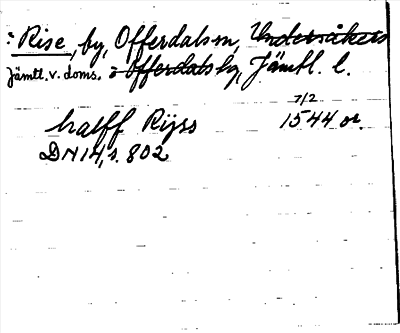 Rise, by, Offerdals sn, Undersåkers
Jämtl. v. doms. o Offerdals tg, Jämtl. l.
7/2
halff Rijss 1544 or.
DN 14, s. 802